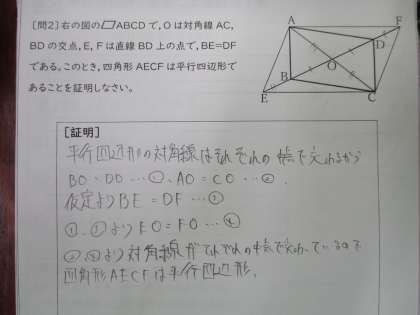 〔問2〕右の図の▱ABCDで,Oは対角線AC,
BDの交点,E,Fは直線BD上の点で,BE=DF
である。このとき,四角形AECFは平行四辺形で
あることを証明しなさい。
A
F
D
O
B
E
C
[証明]
平行四辺形の対角線はそれぞれの中点で交わるから
BO=DO …①、AO=CO …②.
仮定よりBE=DF …③
①、③よりEO=FO …④
②,④より対角線がそれぞれの中点で交わっているので
四角形AECFは平行四辺形.